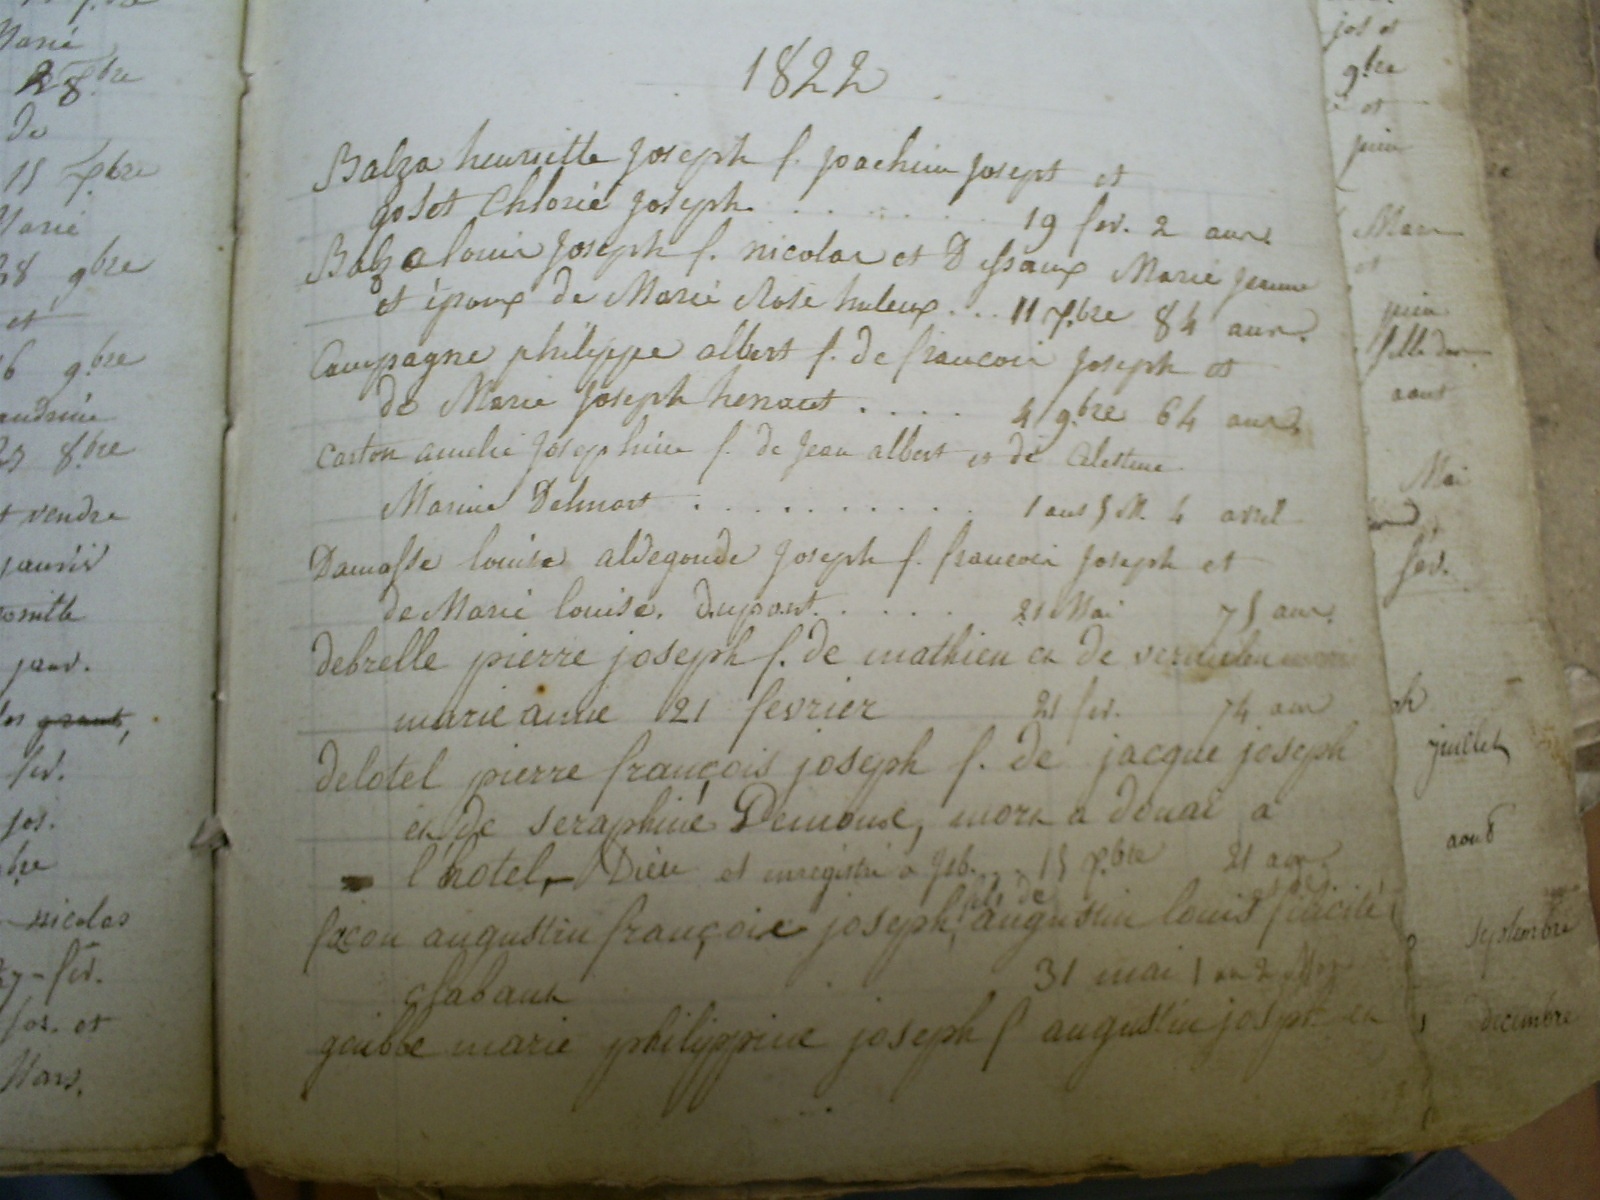 arié
28bre
de
15 7bre
arié
38 9bre
et
6 9bre
andrine
27 8bre
t vendre
janvir
janv.
grant,
fév.
jos.
bre
nicolas
27 - fév.
jos. et
Mars.
1822
Balza henriette Joseph f. joachim Josept et
goset Chlorié Joseph. . . . . . . . 19 fev. 2 ans.
Balza louis Joseph f. nicolas et Dessaux Marie Jeanne
et époux de Marie Rose huleux. . . 11 7.bre 84 ans.
Campagne philippe albert f. de francois Joseph et
de Marie Joseph henaut . . . . . 4 9.bre 64 ans.
Carton amelie Josephine f. de Jean albert et de Celestine
Marine Delmart . . . . . . . . . . 1 ans 5 M. 4 avril
Damasse louise aldegonde Joseph f. francois Joseph et
de Marie louise. Dupont. . . . . . 21 Mai 75 ans.
debrelle pierre joseph f. de mathieu et de
marie anne 21 fevrier 21 fev. 74 ans
delotel pierre françois joseph f. de jacque joseph
et de seraphine Demone, mort a douai a
l'hotel-Dieu et enregistré a feb. . . 15 7.bre 21 ans.
facon augustin françois joseph, fils de augustin louis
chabaut 31 mai 1 an 2 Mois
goubbe marie philippine joseph f augustin josept et
jos et
9.bre
et
juin
Mars
et
juin
fille de
aout
Mai
fév.
ph
juillet
aout
septembre
decembre